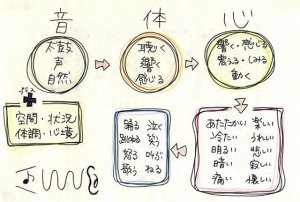 音
体
心
太鼓
声
自然
聴く
響く
感じる
響く・感じる
震える・しみる
動く
プラス
空間・状況
体調・心境
踊る 泣く
跳ねる 笑う
怒る 叫ぶ
歌う ねる
あたたかい 楽しい
冷たい うれしい
明るい 悲しい
暗い 寂しい
痛い 優しい